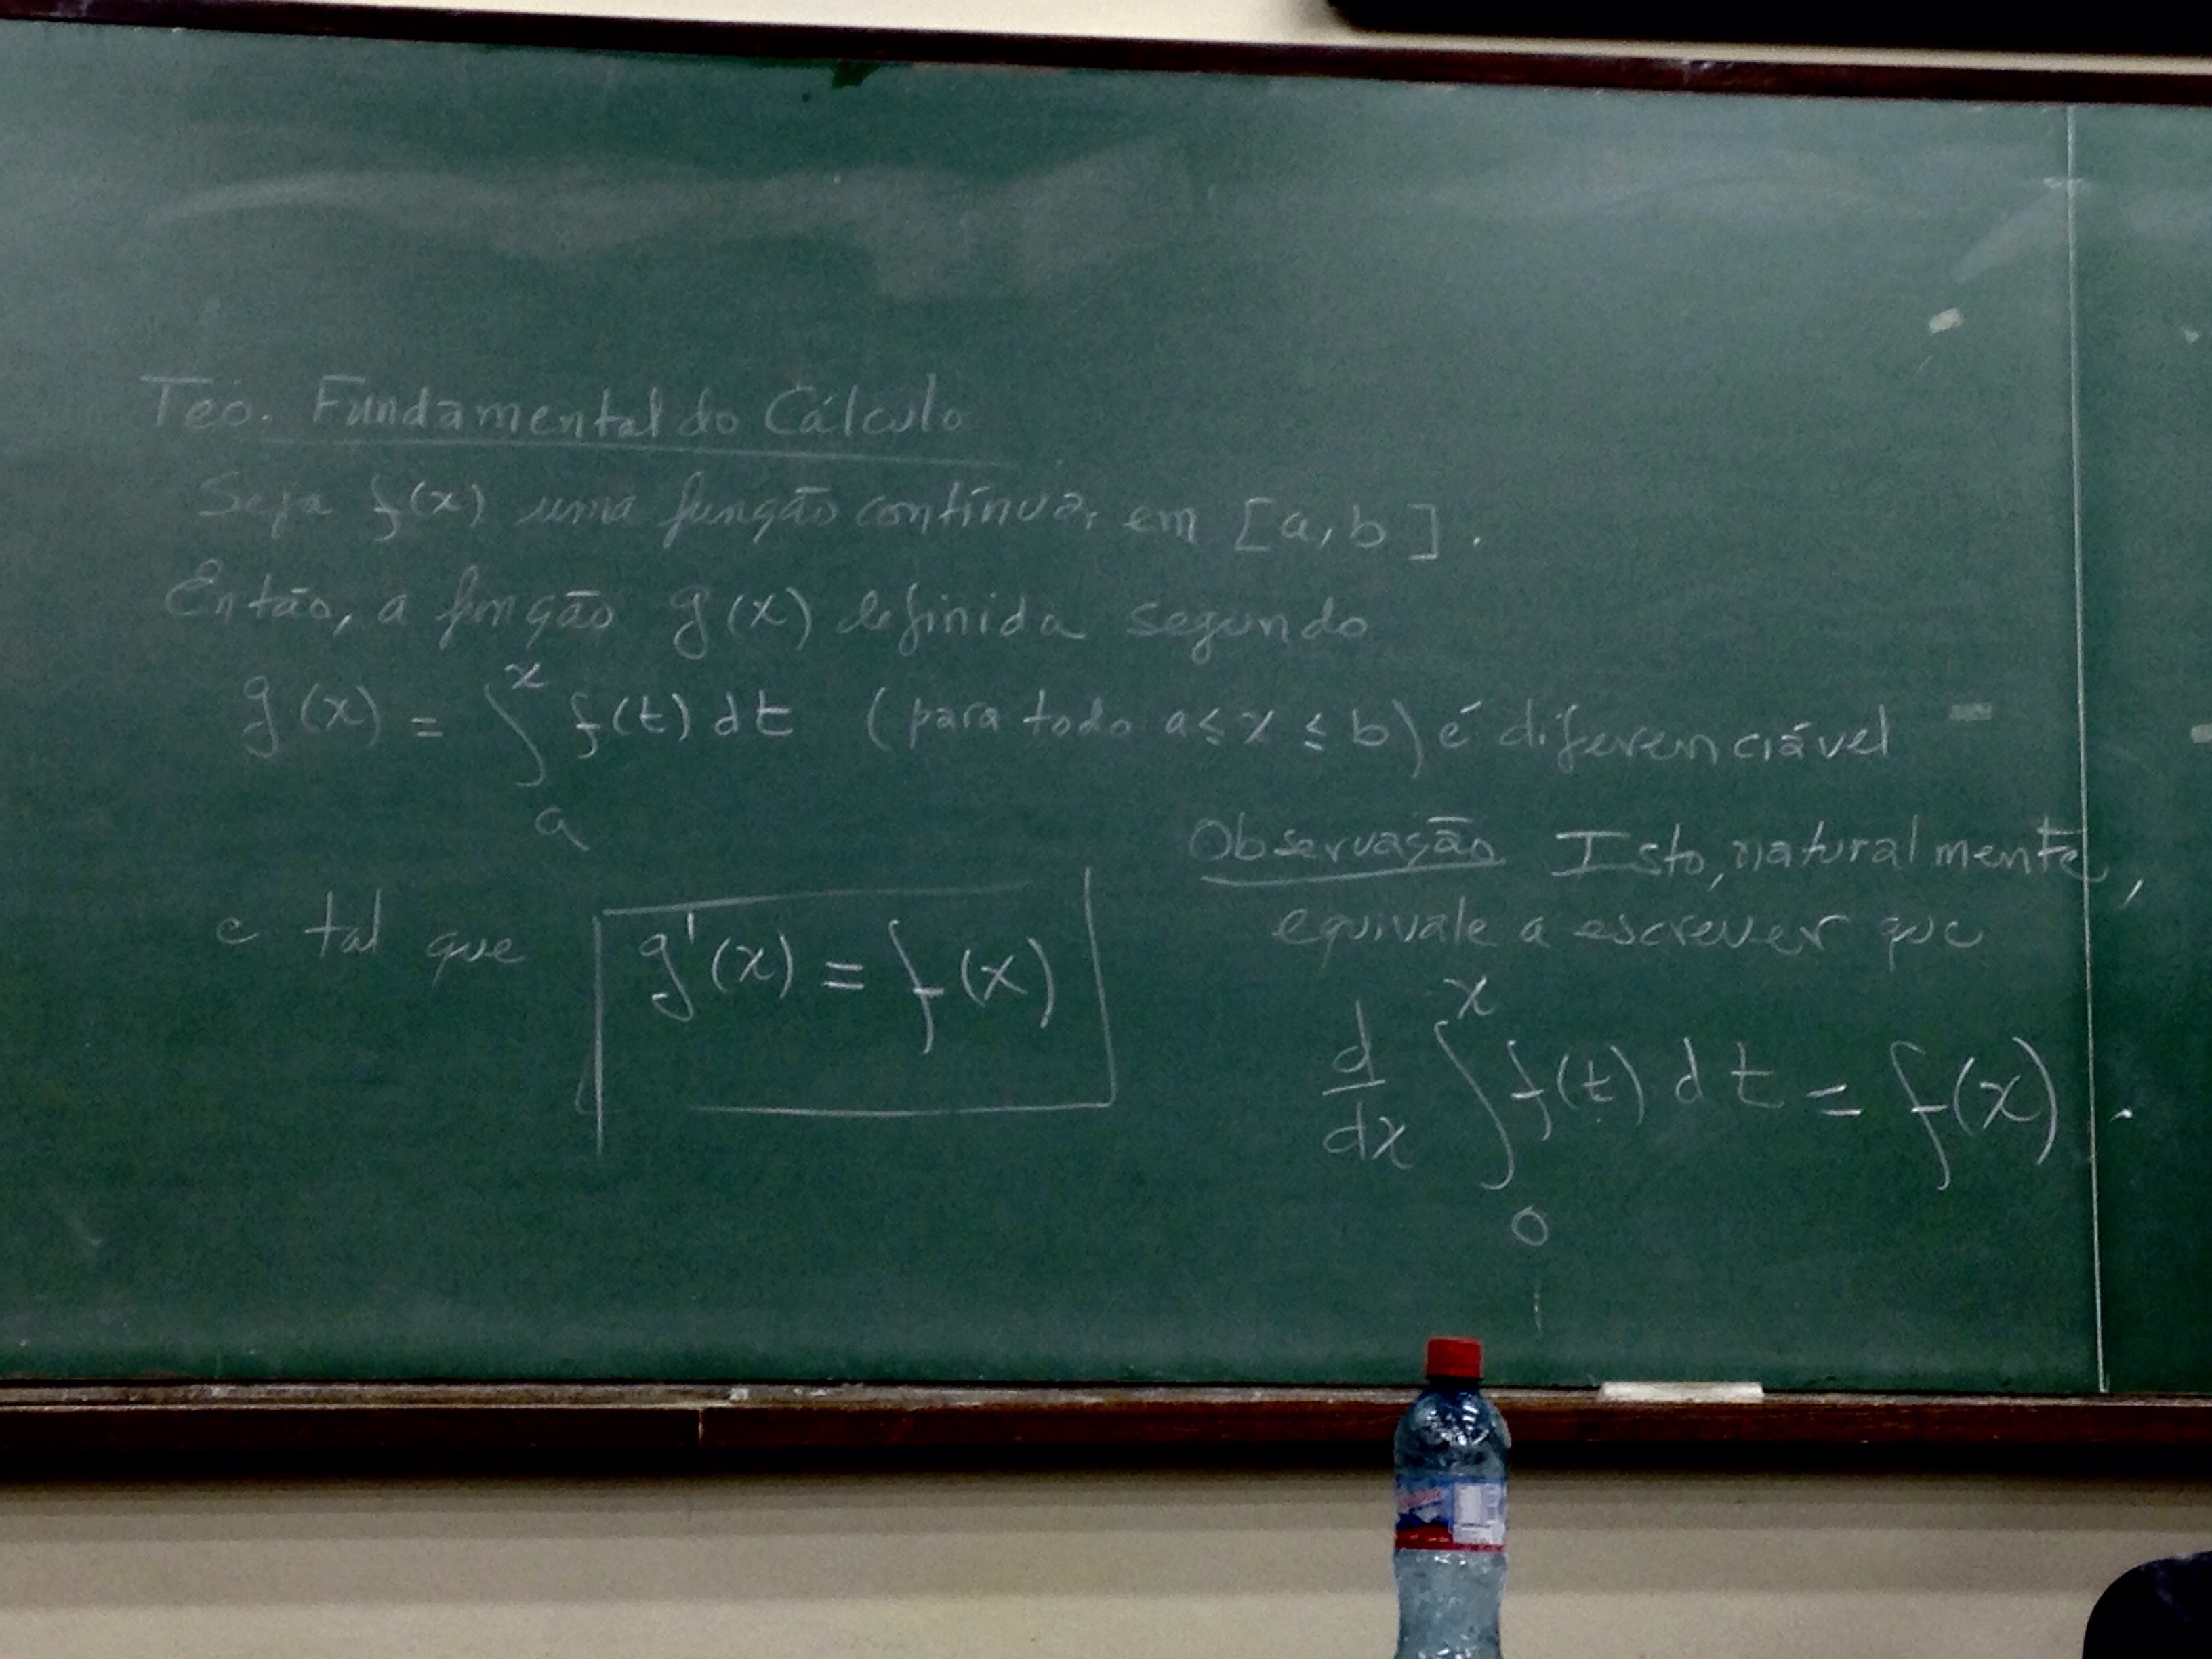 Teo. Fundamental do Cálculo
Seja f(x) uma função contínua em [a,b].
Então, a função g(x) definida segundo
g(x) = ∫_a^x f(t) dt (para todo a ≤ x ≤ b) é diferenciável
e tal que g'(x) = f(x)
Observação Isto, naturalmente,
equivale a escrever que
d/dx ∫_0^x f(t) dt = f(x).